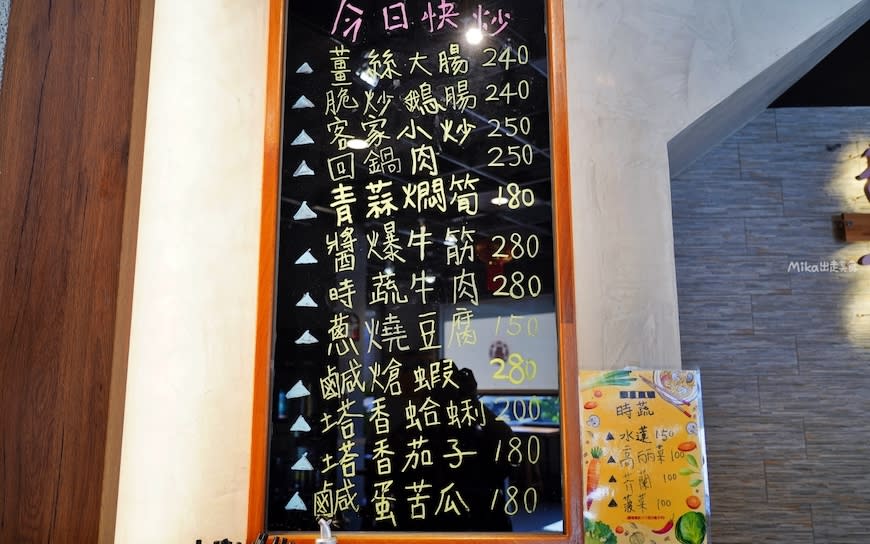 今日快炒
薑絲大腸 240
脆炒鵝腸 240
客家小炒 250
回鍋肉 250
青蒜燜筍 180
醬爆牛筋 280
時蔬牛肉 280
蔥燒豆腐 150
鹹熗蝦 280
塔香蛤蜊 200
塔香茄子 180
鹹蛋苦瓜 180
時蔬
水蓮 150
高丽菜 100
芥蘭 100
菠菜 100
Mika出走美食